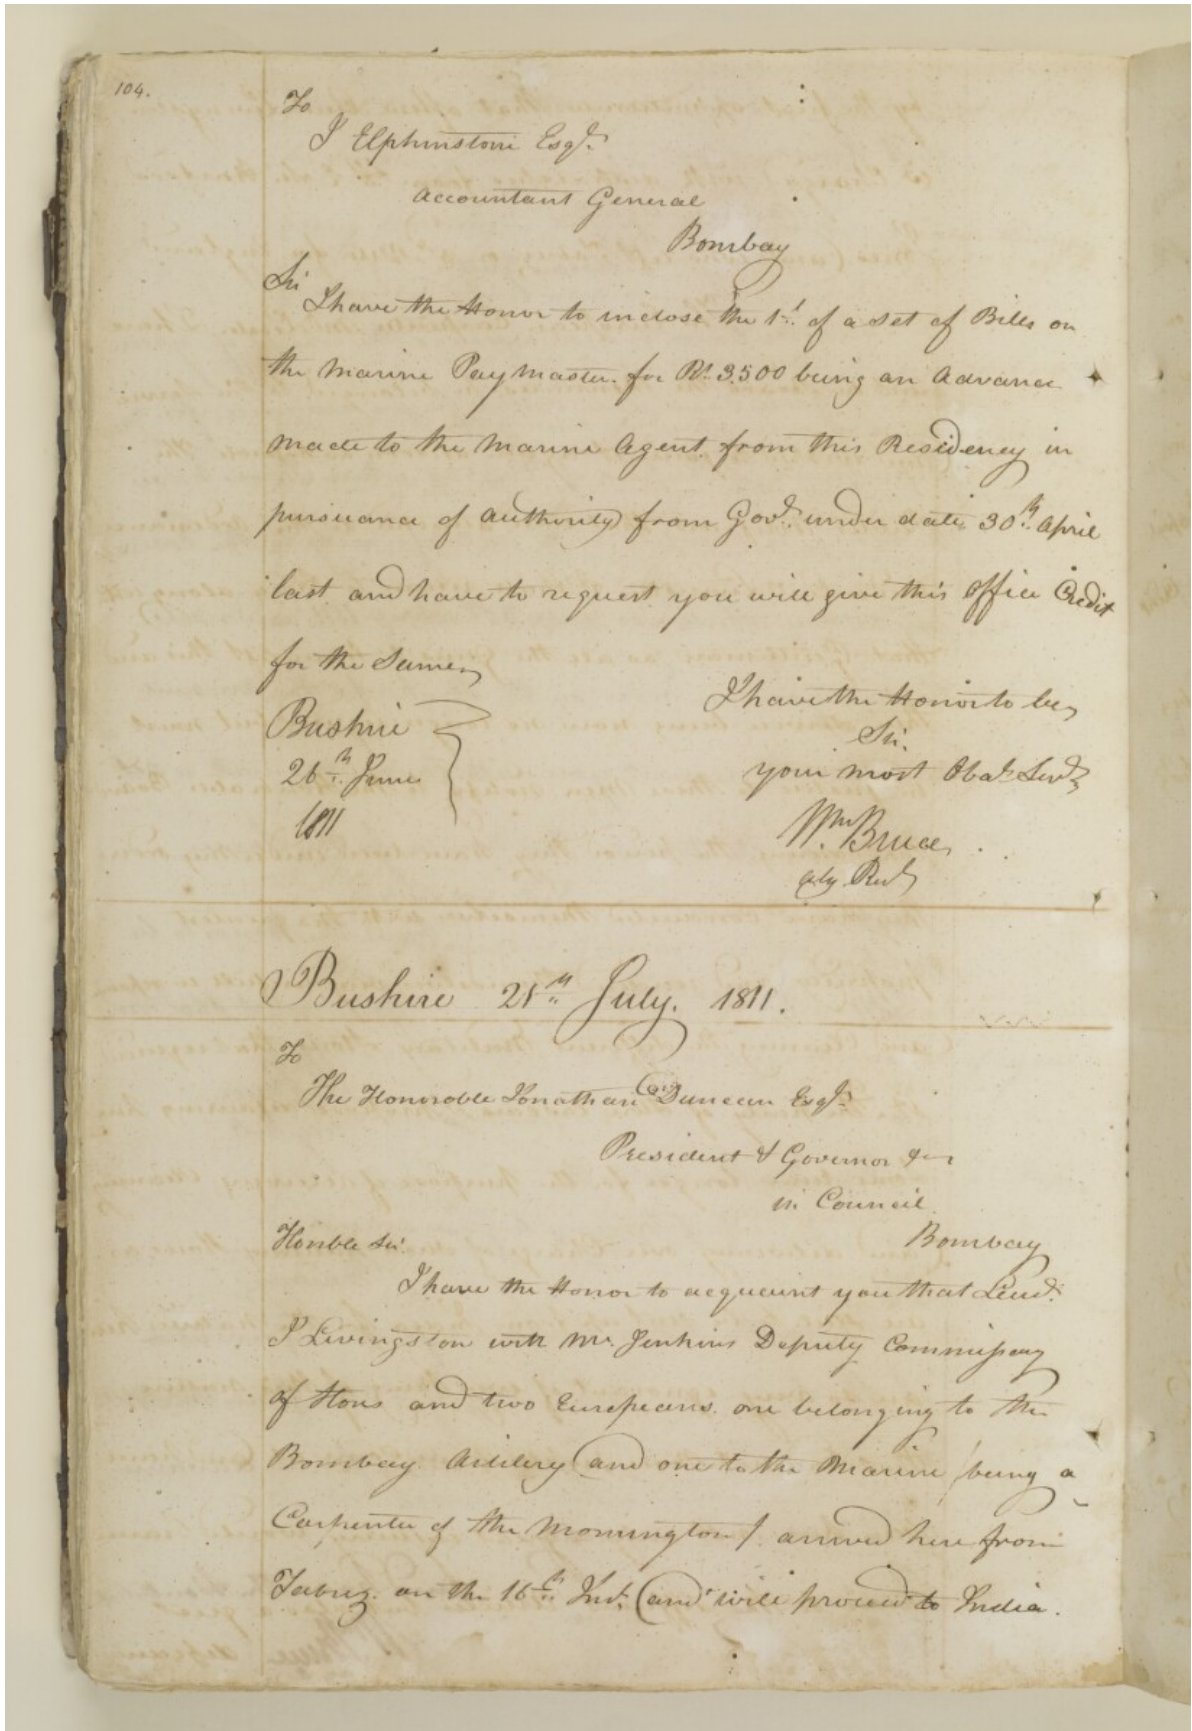 104.
To
J Elphinstone Esqr.
Accountant General
Bombay
Sir
I have the Honor to inclose the 1st. of a set of Bills on
the Marine Paymaster for Rs. 3,500 being an Advance
made to the Marine Agent from this Residency in
pursuance of authority from Govt. under date 30th. April
last and have to request you will give this office Credit
for the Same,
I have the Honor to be,
Bushire
Sir.
26th. June
your most Obdt. Servt.
1811
Wm. Bruce,
actg. Resdt
Bushire 21st July. 1811.
To
The Honoroble Jonathan Duncan Esqr.
President & Governor &ca
in Council
Honble Sir.
Bombay
I have the Honor to acquaint you that Lieut.
J Livingston with Mr. Jenkins Deputy Commissary
of Stores and two Europeans one belonging to the
Bombay Artilery and one to the Marine /being a
Carpenter of the Mornington/ arrived here from
Tabrez on the 16th. Inst. and will proceed to India.